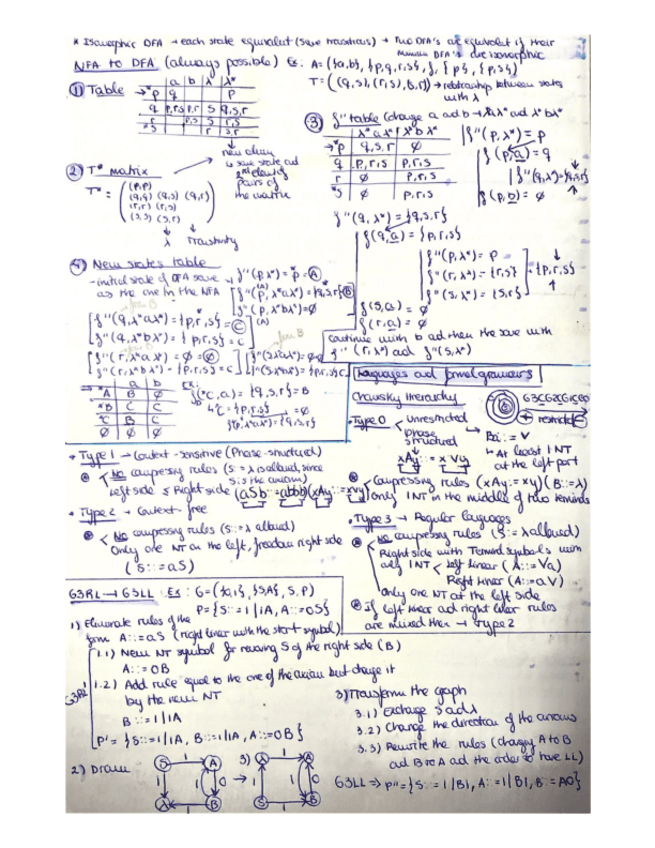 * Isomorphic DFA → each state equivalent (same transitions) → Two DFA's are equivalent if their
minimum DFA's are isomorphic
NFA TO DFA (always possible) Ex: A = ({a,b}, {p,q,r,s}, f, {p}, {p,s})
T = ((q,s), (r,s), (s,r)) → relationship between states
with λ
① Table
a b λ λ*
→*p q p
q p,r,s p,r s q,r,s
r p,s s r,s
*s r s,r
new column
is same state and
2nd element of
pairs of
the matrix
2) T* matrix
T* = (p,p)
(q,q) (q,s) (q,r)
(r,r) (r,s)
(s,s) (s,r)
λ Transitivity
③ f'' table (change a and b → λ*aλ* and λ*bλ*
λ*aλ* λ*bλ*
→*p q,s,r ∅
q p,r,s p,r,s
r ∅ p,r,s
*s ∅ p,r,s
f''(p,λ*) = p
f(p,a) = q
f''(q,λ*) = q,r,s
f(p,b) = ∅
f''(q,λ*) = {q,s,r}
f(q,a) = {p,r,s}
f''(p,λ*) = p
f''(r,λ*) = {r,s}
f''(s,λ*) = {s,r}
= {p,r,s}
f(s,a) = ∅
f(r,a) = ∅
continue with b and then the same with
f''(r,λ*) and f''(s,λ*)
④ New states table
- initial state of DFA same
as the one in the NFA
f''(p,λ*) = p = Ⓐ
f''(p,λ*aλ*) = {q,s,r} Ⓑ
f''(p,λ*bλ*) = ∅
f''(q,λ*aλ*) = {p,r,s} = Ⓒ
f''(q,λ*bλ*) = {p,r,s} = C
f''(r,λ*aλ*) = ∅ = ∅
f''(r,λ*bλ*) = {p,r,s} = C
a b
→*A B ∅
*B C C
*C B C
∅ ∅ ∅
Ex:
f(*C,a) = {q,s,r} = B
↳ C = {p,r,s}
Languages and formal grammars
Chomsky Hierarchy
G3⊂G2⊂G1⊂G0
+ restricted
• Type 0 → Unrestricted
phrase
structured
xAy ::= xVy
A ::= V
↳ At least 1 NT
at the left part
Compressing rules (xAy ::= xy) (A ::= λ)
only 1 NT in the middle of two terminals
• Type 1 → Context-sensitive (Phrase-structured)
No compressing rules (S ::= λ is allowed, since
S is the axiom)
Left side ≤ Right side (aSb ::= abbb) (xAy ::= xVy)
• Type 2 → Context-free
No compressing rules (S ::= λ allowed)
Only one NT on the left, freedom right side
(S ::= aS)
• Type 3 → Regular languages
No compressing rules (S ::= λ allowed)
Right side with Terminal symbols with
only 1 NT < Left linear (A ::= Va)
Right linear (A ::= aV)
only one NT at the left side
if left linear and right linear rules
are mixed then → Type 2
G3RL → G3LL Ex: G = ({0,1}, {S,A}, S, P)
P = {S ::= 1|1A, A ::= 0S}
1) Eliminate rules of the
form A ::= aS (right linear with the start symbol)
G3RL'
1.1) New NT symbol for removing S of the right side (B)
A ::= 0B
1.2) Add rule equal to the one of the axiom but change it
by the new NT
B ::= 1|1A
P' = {S ::= 1|1A, B ::= 1|1A, A ::= 0B}
2) Draw
S 1 A
1 1 0
λ 1 B
3)
λ 1 A
1 1 0
S 1 B
3) Transform the graph
3.1) Exchange S and λ
3.2) Change the direction of the arrows
3.3) Rewrite the rules (changing A to B
and B to A and the order to have LL)
G3LL ⇒ P'' = {S ::= 1|B1, A ::= 1|B1, B ::= A0}